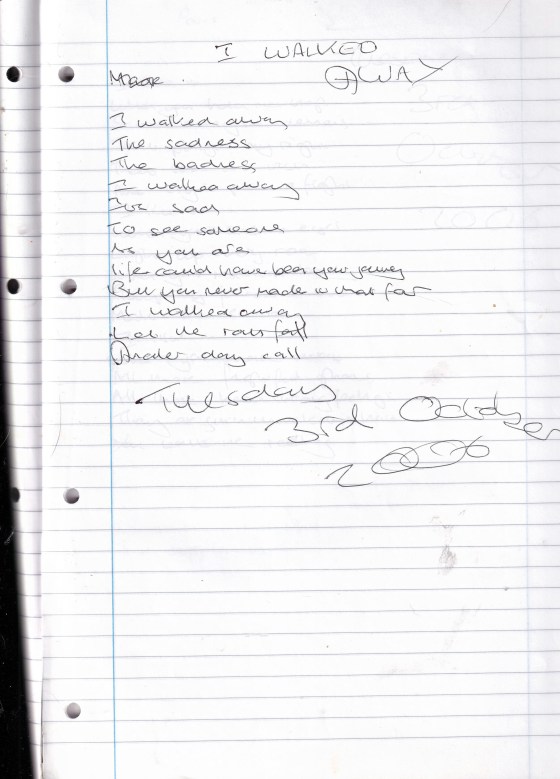 I WALKED
AWAY
I walked away
The sadness
The badness
I walked away
It's sad
To see someone
As you are
life could have been your journey
But you never made it that far
I walked away
Let the rain fall
Another day call
Tuesday
3rd October
2006